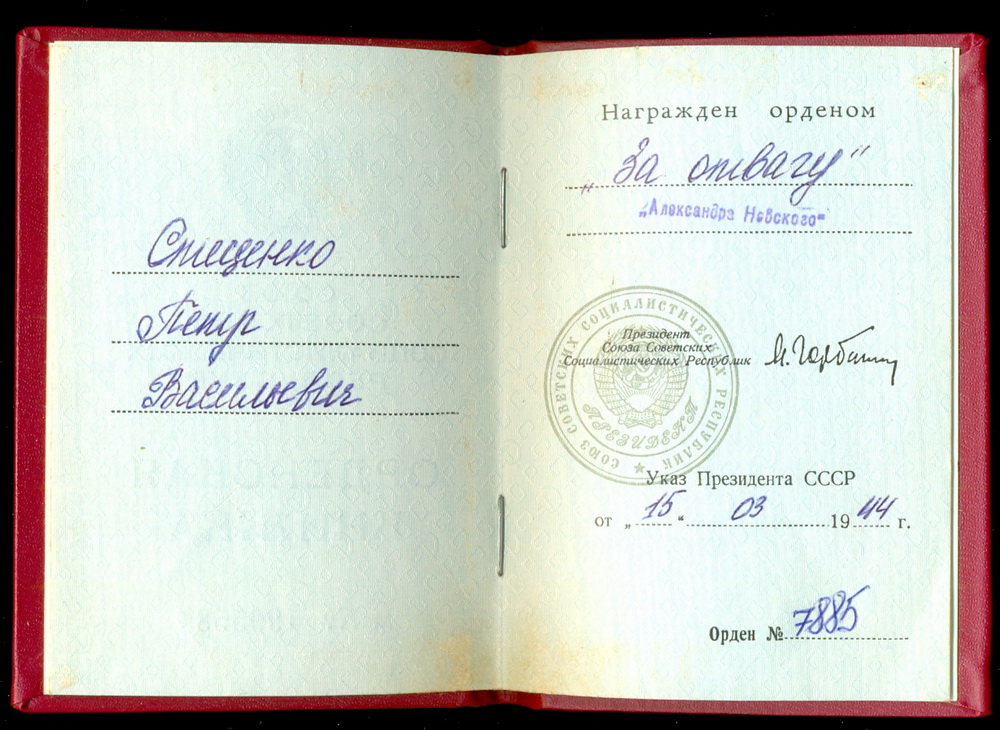 Стеценко
Петр
Васильевич
Награжден орденом
„За отвагу“
„Александра Невского“
СОЮЗ СОВЕТСКИХ СОЦИАЛИСТИЧЕСКИХ РЕСПУБЛИК
ПРЕЗИДЕНТ
Президент
Союза Советских
Социалистических Республик
М. Горбачев
Указ Президента СССР
от „15“ 03 1944 г.
Орден № 7885